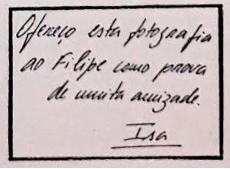 Ofereço esta fotografia
ao Filipe como prova
de muita amizade.
Isa